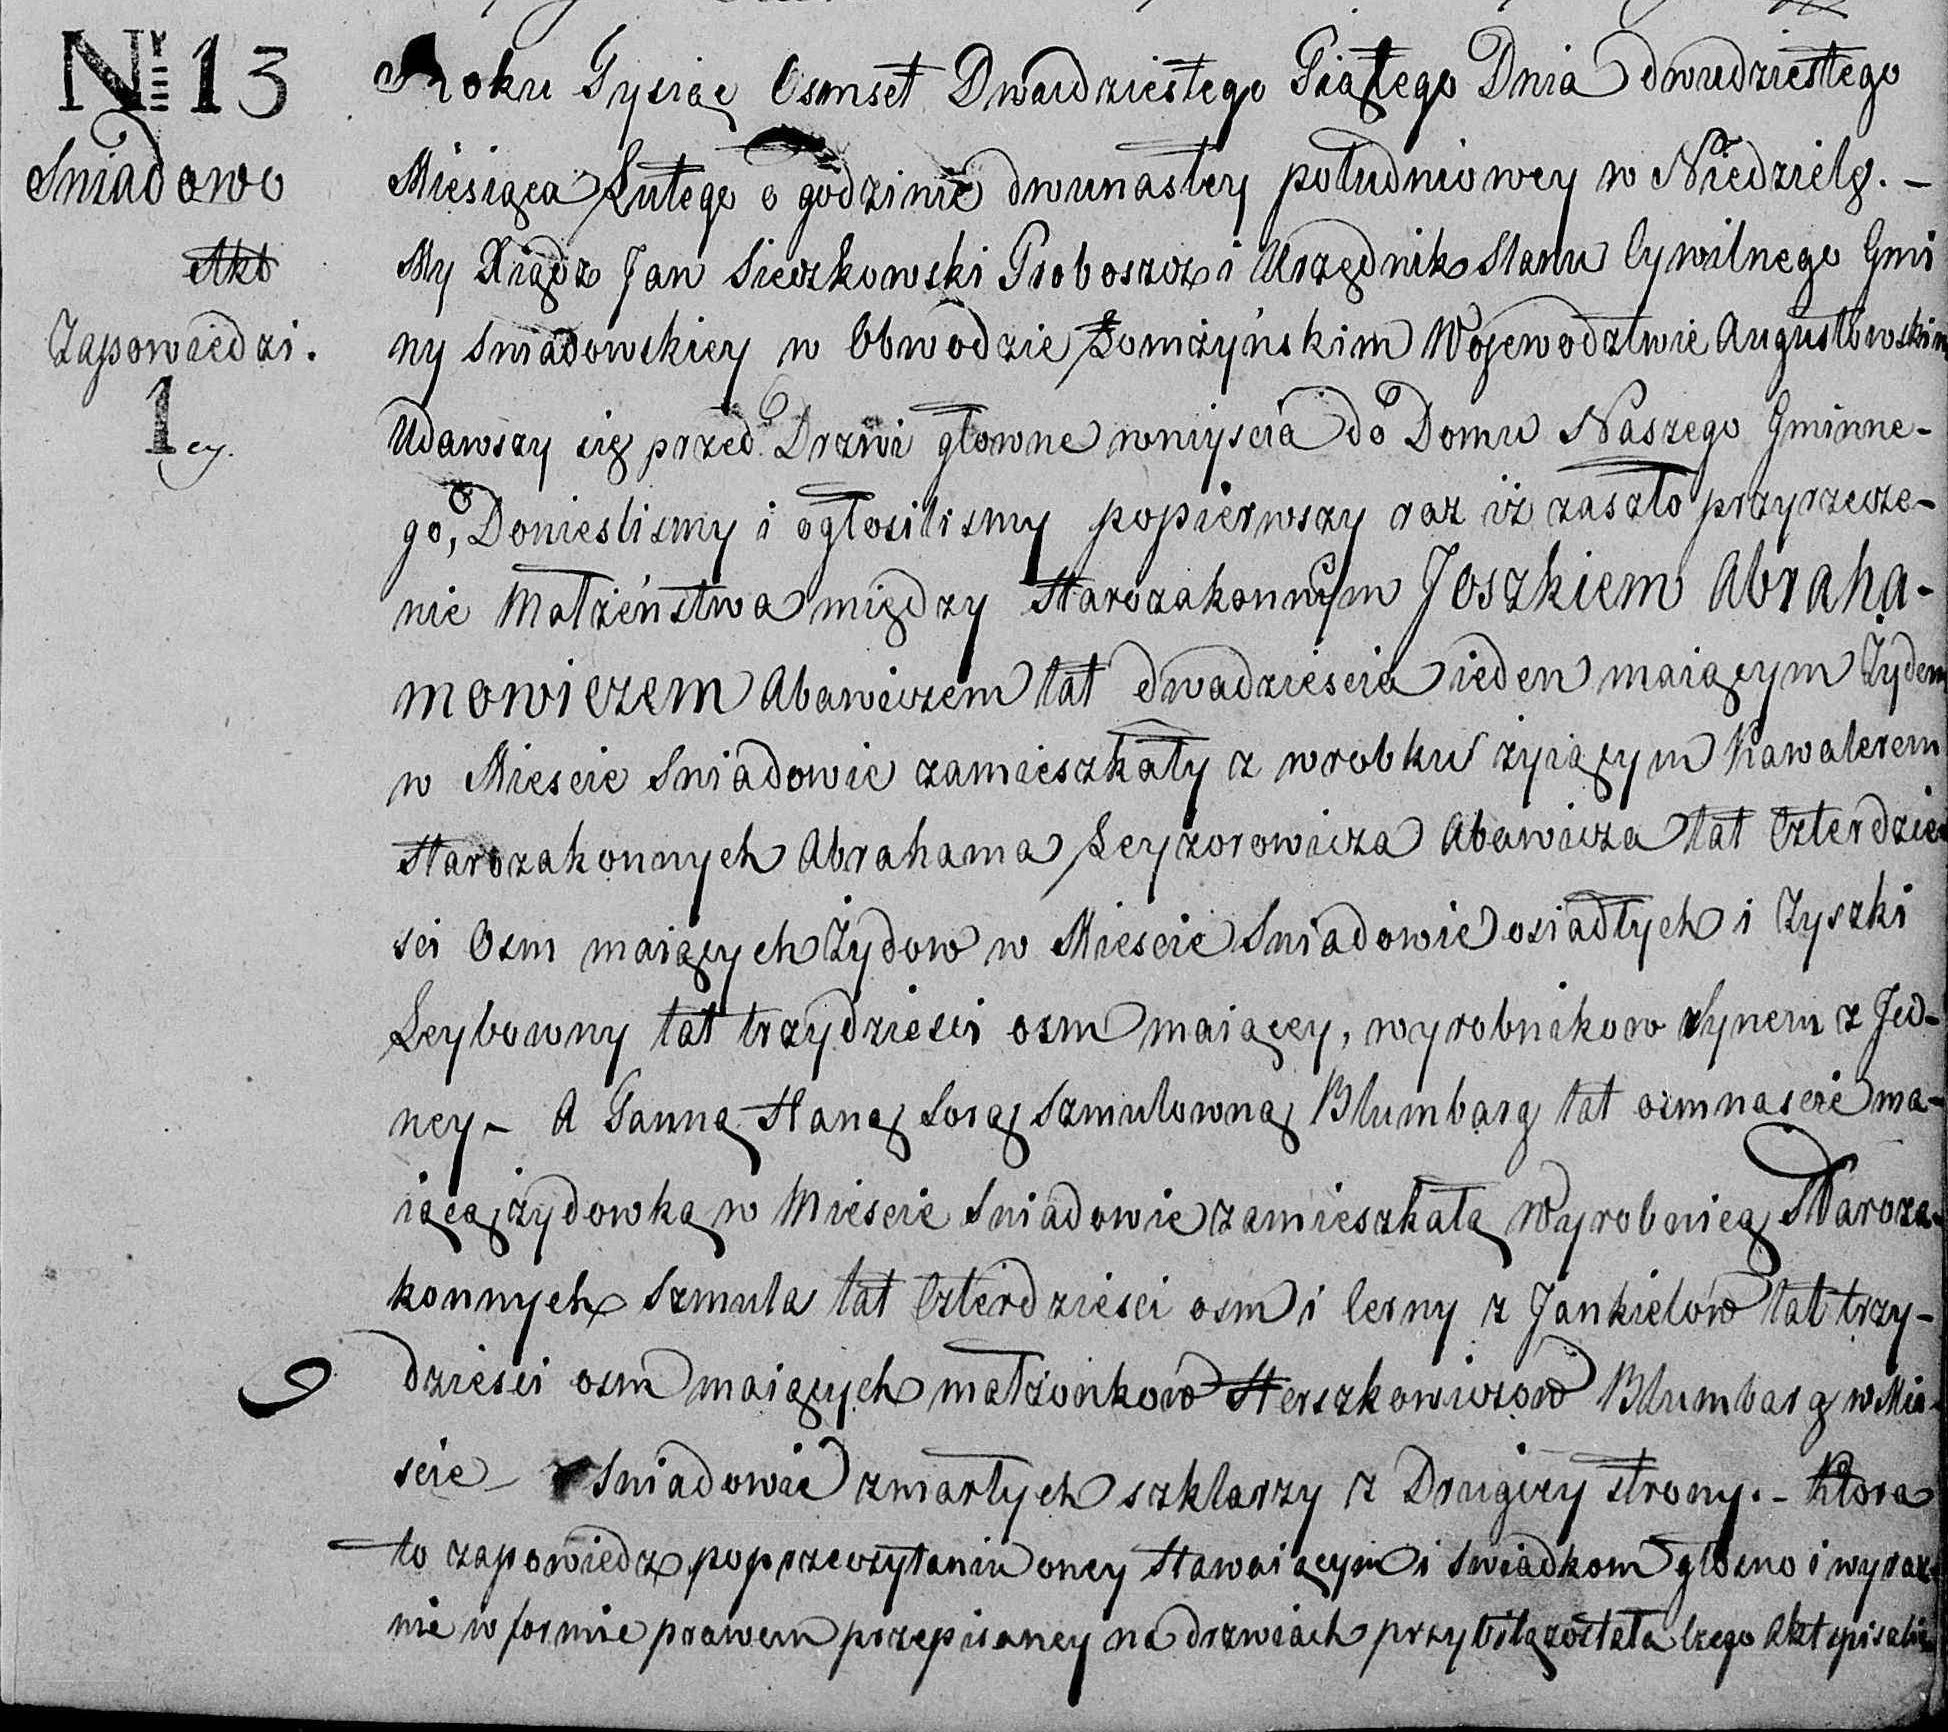 Nr 13
Sniadowo
Akt
Zapowiedzi.
1 ey.
Roku Tysiąc Osmset Dwudziestego Piątego Dnia dwudziestego
Miesiąca Lutego o godzinie dwunastey południowey w Niedzielę. –
My Xiądz Jan Sieczkowski Proboszcz i Urzędnik Stanu Cywilnego Gmi
ny Sniadowskiey w Obwodzie Łomżyńskim Wojewodztwie Augustowskim
Udawszy się przed Drzwi głowne wniyscia do Domu Naszego Gminne-
go, Donieslismy i ogłosilismy popierwszy raz iż zaszło przyrzecze-
nie Małżeństwa między Starozakonnym Joszkiem Abraha-
mowiczem Abawiczem lat dwadziescia ieden maiącym Żydem
w Miescie Sniadowie zamieszkały z wrobku zyiącym Kawalerem
Starozakonnych Abrahama Leyzorowicza Abawicza lat Czterdzie
sci Osm maiących Żydow w Miescie Sniadowie osiadłych i Zyszki
Leybowny lat trzydziesci osm maiącey, wyrobnikow synem z Jed-
ney – A Panną Haną Sorą Szmulowną Blumbarg lat osmnascie ma-
iącą żydowką w Miescie Sniadowie zamieszkałą Wyrobnicą Staroza-
konnych Szmula lat Czterdziesci osm i Cerny z Jankielow lat trzy-
dziesci osm maiących małżonkow Herszkowiczow Blumbarg w Mie-
scie Sniadowie zmarłych szklarzy z Drugiey strony. – Ktora
to zapowiedz poprzeczytaniu oney Stawaiącym i swiadkom głosno i wyraz-
nie w formie prawem przepisaney na drzwiach przybitą została Czego Akt spisalis